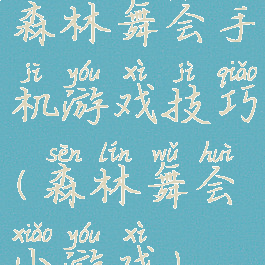 森林舞会手
jī yóu xì jì qiǎo
机游戏技巧
sēn lín wǔ huì
(森林舞会
xiǎo yóu xì
小游戏)